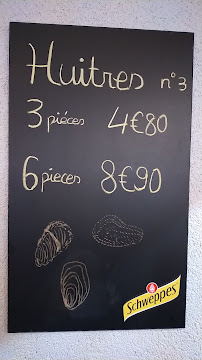 Huitres n°3
3 piéces 4€80
6 pieces 8€90
Schweppes